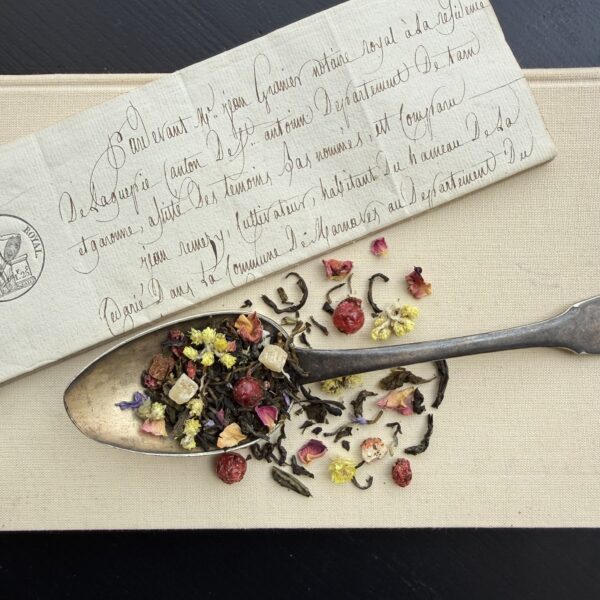 Pardevant Mr. jean Granier notaire royal à La residence
De Laguepie Canton De St. antonin Departement De tarn
et garonne, assisté Des temoins bas nommés, est Comparu
jean remezy, Cultivateur, habitant Du hameau De La
Dans La Commune De Marnaves au Departement Du
ROYAL